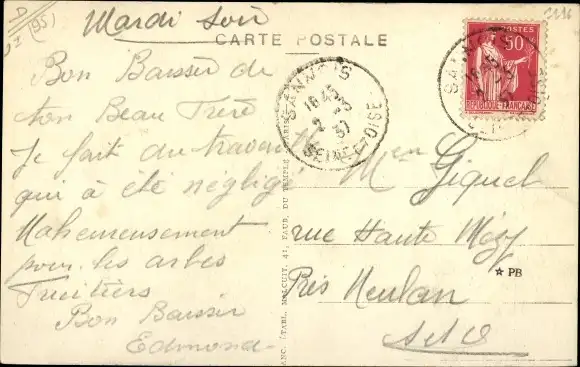 Mardi soir
CARTE POSTALE
Bon Baiser de
ton Beau Frère
Je fait du travail
qui à été négligé
Maheureusement
pour les arbes
Fruitiers
Bon Baiser
Edmond
SANNOIS
16 45
2 - 3
37
SEINE-ET-OISE
POSTES
50c
RÉPUBLIQUE FRANÇAISE
Giquel
rue Haute Mézy
Près Meulan
S et O
☆ PB
ANC. ÉTABL. MALCUIT, 41, FAUB. DU TEMPLE, PARIS
(95)